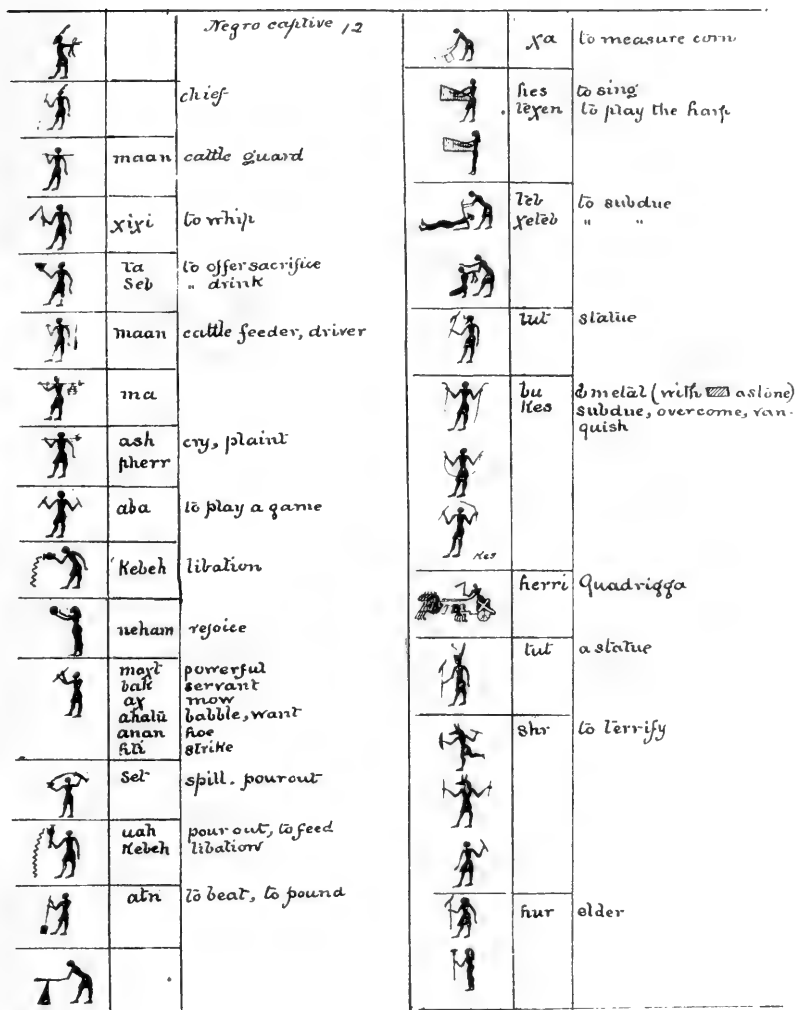 Negro captive 12
chief
maan cattle guard
χiχi to whip
ta to offer sacrifice
Seb " drink
maan cattle feeder, driver
ma
ash cry, plaint
pherr
aba to play a game
Kebeh libation
neham rejoice
powerful
bak servant
aχ mow
babble, want
anan hoe
hti strike
set spill. pour out
uah pour out, to feed
Kebeh libation
atn to beat, to pound
χa to measure corn
hes to sing
teχen to play the harp
teb to subdue
χeteb " "
tut statue
bu metal (with a stone)
Kes subdue, overcome, van-
quish
Kes
herri Quadrigga
tut a statue
shr to terrify
hur elder